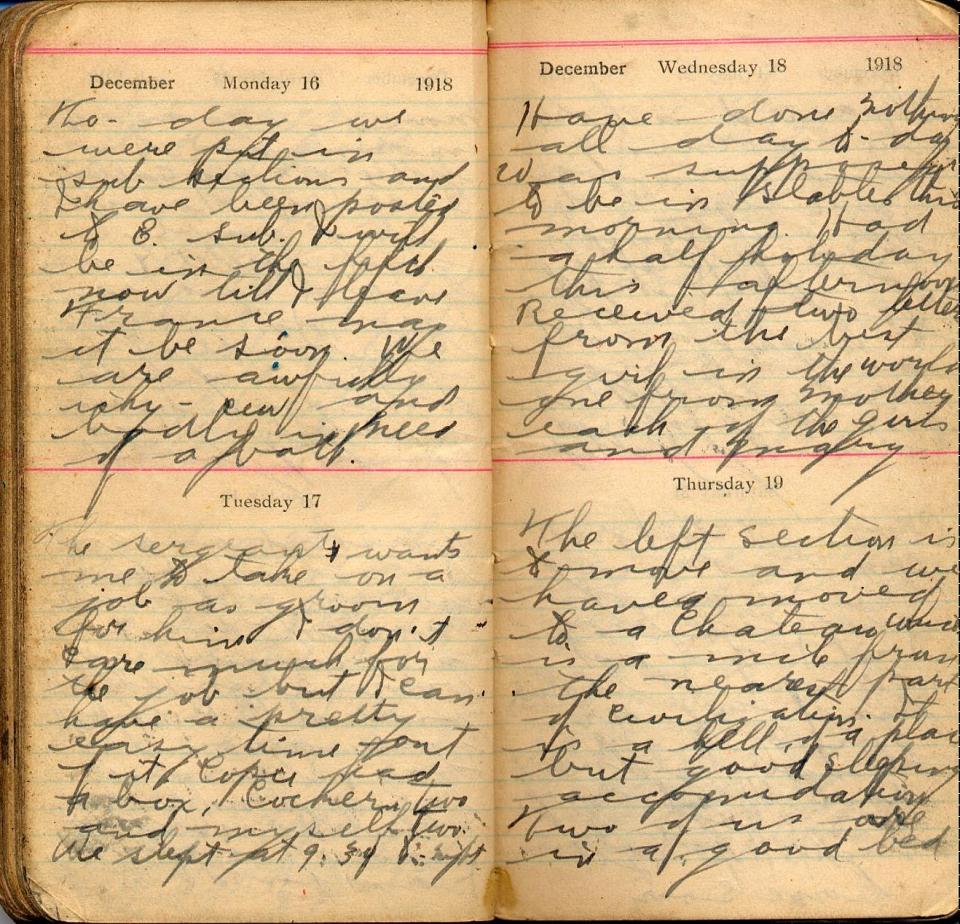 December Monday 16 1918
To-day we
were put in
sub sections and
I have been posted
to E. sub. I will
be in the
now till I leave
France may
it be soon. We
are awfully
and
badly in need
of a bath.
Tuesday 17
The sergeant wants
me to take on a
job as groom
for him I don't
care much for
the job but I can
have a pretty
easy time out
of it had
a box, two
and myself two.
We slept at 9.30 to-night
December Wednesday 18 1918
Have done nothing
all day to-day
Was supposed
to be in Stables this
morning. Had
a half holiday
this afternoon
Received two letters
from the best
girl in the world
one from Mother
each of the girls
and
Thursday 19
The left Section is
to move and we
have moved
to a Chateau which
is a mile from
the nearest part
of Civilization. It
is a hell of a place
but good sleeping
accomidation
Two of us are
in a good bed